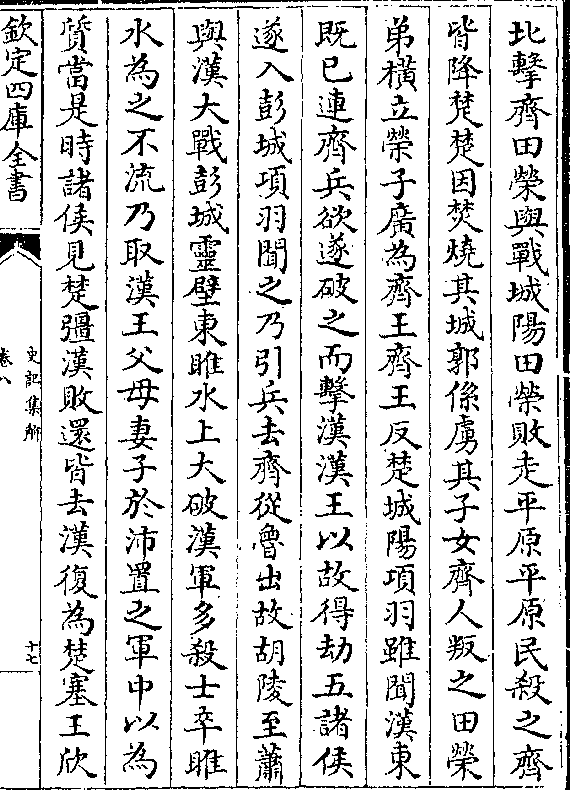 北擊齊田榮與戰城陽田榮敗走平原平原民殺之齊
皆降楚楚因焚燒其城郭係虜其子女齊人叛之田榮
弟橫立榮子廣為齊王齊王反楚城陽項羽雖聞漢東
既已連齊兵欲遂破之而擊漢漢王以故得劫五諸侯
遂入彭城項羽聞之乃引兵去齊從魯出故胡陵至蕭
與漢大戰彭城靈壁東睢水上大破漢軍多殺士卒睢
水為之不流乃取漢王父母妻子於沛置之軍中以為
質當是時諸侯見楚彊漢敗還皆去漢復為楚塞王欣
欽定四庫全書
史記集解
卷八
十七